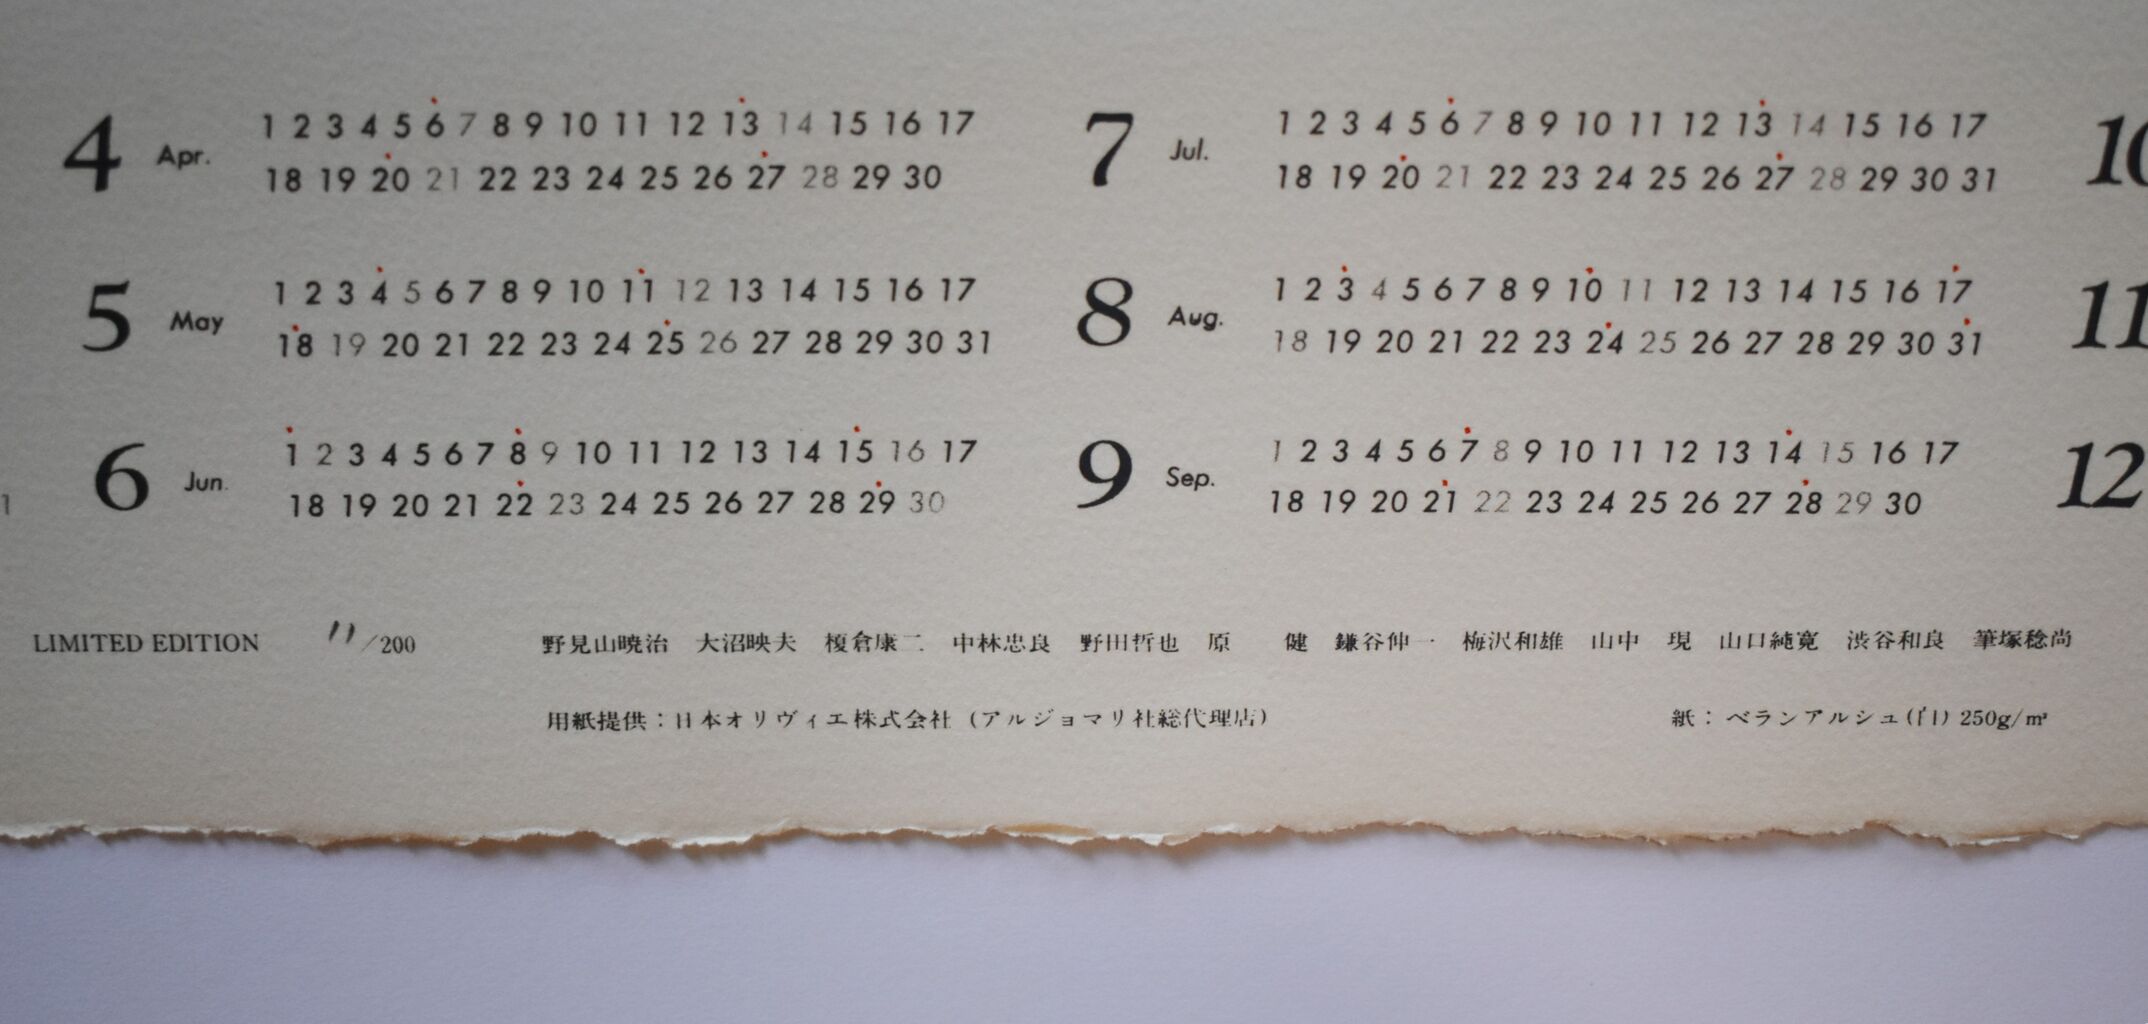 4 Apr. 1 2 3 4 5 6 7 8 9 10 11 12 13 14 15 16 17
18 19 20 21 22 23 24 25 26 27 28 29 30
5 May 1 2 3 4 5 6 7 8 9 10 11 12 13 14 15 16 17
18 19 20 21 22 23 24 25 26 27 28 29 30 31
6 Jun. 1 2 3 4 5 6 7 8 9 10 11 12 13 14 15 16 17
18 19 20 21 22 23 24 25 26 27 28 29 30
7 Jul. 1 2 3 4 5 6 7 8 9 10 11 12 13 14 15 16 17
18 19 20 21 22 23 24 25 26 27 28 29 30 31
8 Aug. 1 2 3 4 5 6 7 8 9 10 11 12 13 14 15 16 17
18 19 20 21 22 23 24 25 26 27 28 29 30 31
9 Sep. 1 2 3 4 5 6 7 8 9 10 11 12 13 14 15 16 17
18 19 20 21 22 23 24 25 26 27 28 29 30
10
11
12
LIMITED EDITION 11/200 野見山暁治 大沼映夫 榎倉康二 中林忠良 野田哲也 原 健 鎌谷伸一 梅沢和雄 山中 現 山口純寛 渋谷和良 筆塚稔尚
用紙提供：日本オリヴィエ株式会社（アルジョマリ社総代理店） 紙：ベランアルシュ(白) 250g/㎡